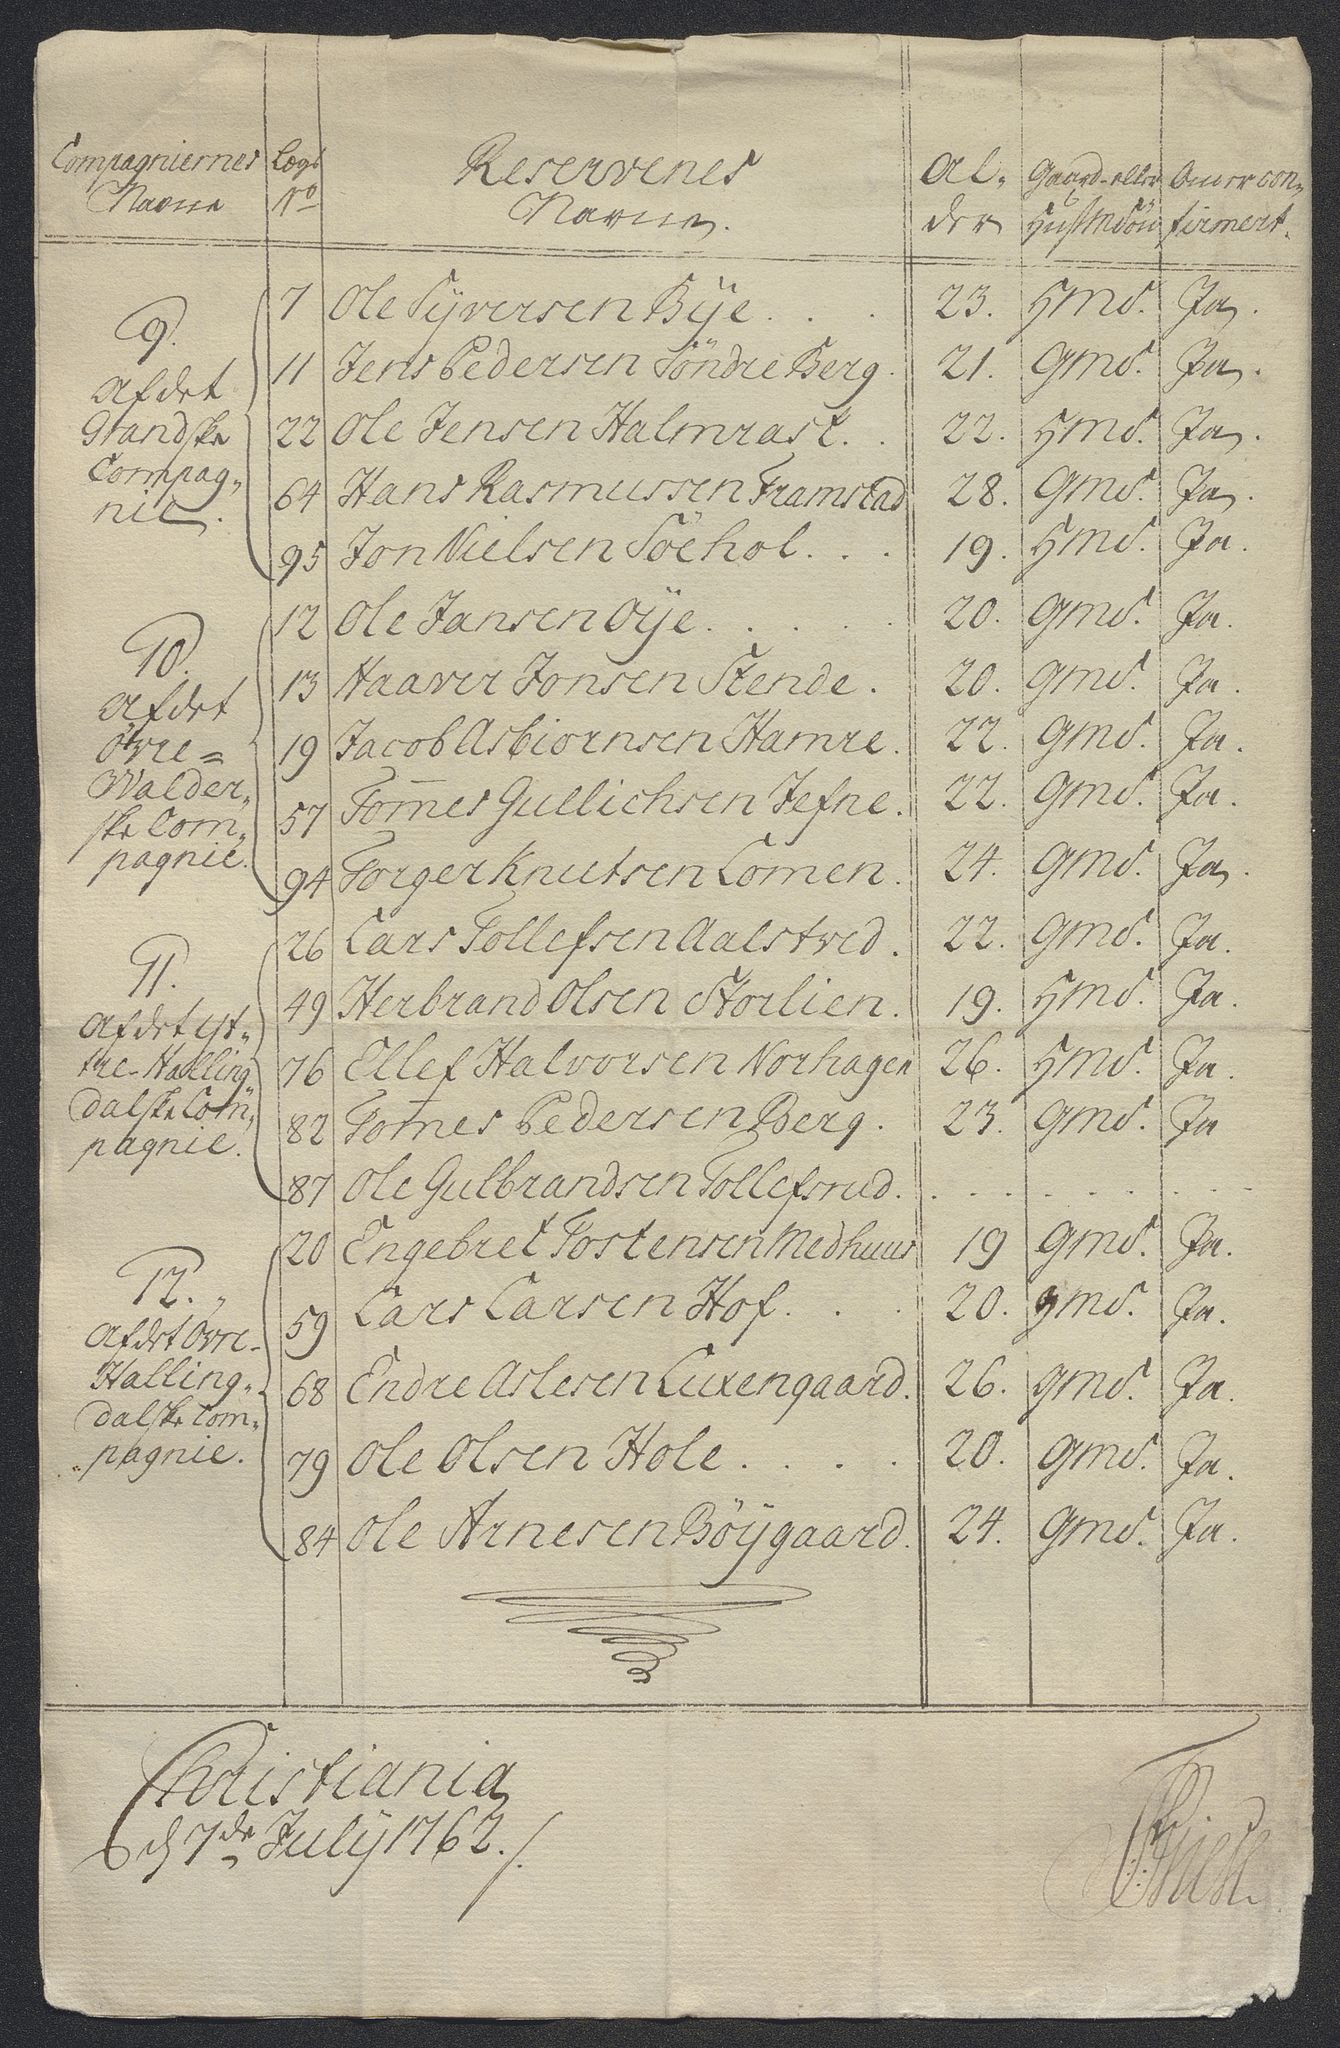 Compagniernes Navne
Lægs No
Reservenes Navne.
Al-der
Gaard- eller Husmdsön
Om er con-firmert.
9.
Af det
Grandske
Compag-
nie.
7 Ole Syversen Bÿe . . . 23. Hmd. Ja.
11 Jens Pedersen Söndre Berg. 21. Gmd. Ja.
22 Ole Jensen Halmrast . . 22. Hmd. Ja.
64 Hans Rasmussen Framstad 28. Gmd. Ja.
95 Jon Nielsen Söehol . . . 19. Hmd. Ja.
10.
Af det
Övre=
Walder-
ske Com-
pagnie.
12 Ole Jansen Oÿe . . . . . 20. Gmd. Ja.
13 Haaver Jonsen Stende . 20. Gmd. Ja.
19 Jacob Asbiornsen Hamre. 22. Gmd. Ja.
57 Tom̄es Gullichsen Jefne. 22. Gmd. Ja.
94 Torger Knutsen Lomen. 24. Gmd. Ja.
11.
Af det yt-
tre-Halling-
dalske Com-
pagnie.
26 Lars Tollefsen Aalstved . 22. Gmd. Ja.
49 Herbrand Olsen Storlien. 19. Hmd. Ja.
76 Ellef Halvorsen Norhagen 26. Hmd. Ja.
82 Tom̄es Pedersen Berg. 23. Gmd. Ja
87 Ole Gulbrandsen Tollefsrud. . . . . . . .
12.
Af det Ovre-
Halling-
dalske Com-
pagnie.
20 Engebret Tostensen Medhuus 19 Gmd. Ja.
59 Lars Larsen Hof. . . 20. Hmd. Ja.
68 Endre Aslesen Luxengaard. 26. Gmd. Ja.
79 Ole Olsen Hole . . . . 20. Gmd. Ja.
84 Ole Arnesen Böÿgaard. 24. Gmd. Ja.
Christiania
d 7de Julÿ 1762./.